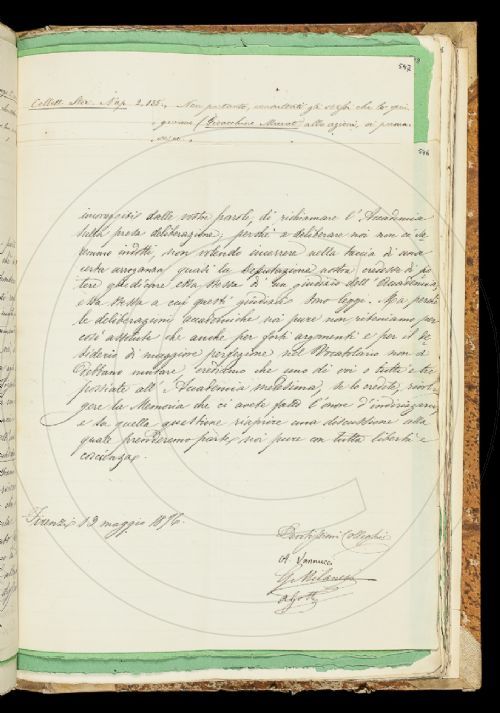 547
Collett. Stor. Nap. 2. 135. Non pertanto, sconsolati gli sforzi che lo spin-
gevano (Gioacchino Murat) alle azioni, si ferma-
546
incoraggiti dalle vostre parole, di richiamare l'Accademia
sulla presa deliberazione; perchè a deliberare noi non ci sa-
remmo indotti, non volendo incorrere nella taccia di una
certa arroganza, quasi la Deputazione nostra credesse di po-
tere giudicare essa stessa di un giudizio dell'Accademia,
essa stessa a cui questi giudizi sono legge. Ma perchè
le deliberazioni accademiche noi pure non riteniamo per
così assolute che anche per forti argomenti e per il de-
siderio di maggiore perfezione nel Vocabolario non si
debbano mutare, crediamo che uno di voi o tutti e tre
possiate all'Accademia medesima, se lo credete, rivol-
gere la Memoria che ci avete fatto l'onore d'indirizzarci
e su quella questione riaprire una discussione alla
quale prenderemo parte noi pure con tutta libertà e
coscienza.
Firenze 12 maggio 1876.
Devotissimi Colleghi
A. Vannucci
G. Milanesi
A. Gotti